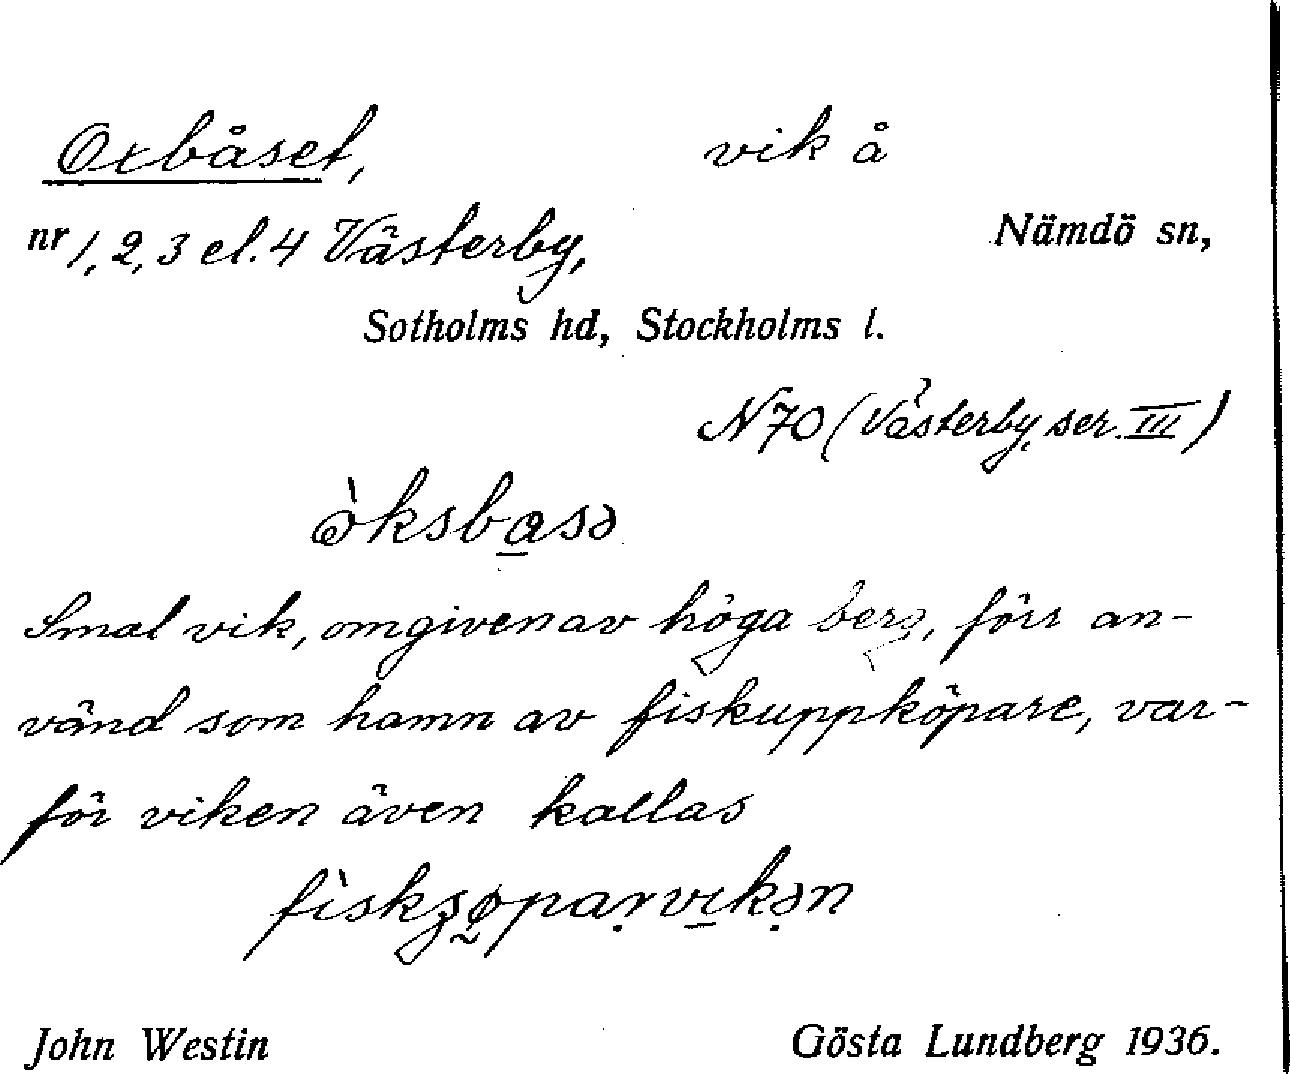 Oxbåset, vik å
nr 1, 2, 3 el. 4 Västerby, Nämdö sn,
Sotholms hd, Stockholms l.
N 70 (Västerby, ser. III)
òksbasə
Smal vik, omgiven av höga berg, förr an-
vänd som hamn av fiskuppköpare, var-
för viken även kallas
John Westin Gösta Lundberg 1936.